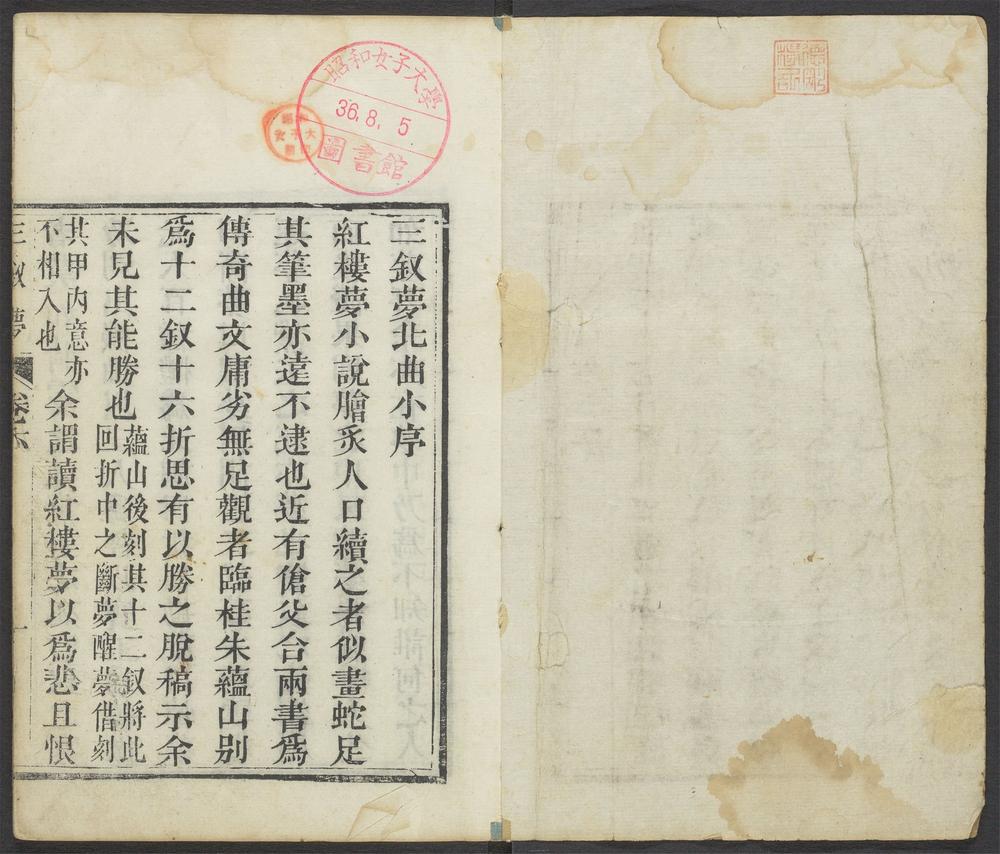 昭和女子大學
36.8.5
圖書館
三釵夢北曲小序
紅樓夢小說膾炙人口續之者似畫蛇足
其筆墨亦遠不逮也近有傖父合兩書爲
傳奇曲文庸劣無足觀者臨桂朱蘊山別
爲十二釵十六折思有以勝之脫稿示余
未見其能勝也蘊山後刻其十二釵將此
回折中之斷夢醒夢借刻
其甲內意亦
不相入也
余謂讀紅樓夢以爲悲且恨
三釵夢
卷六
一